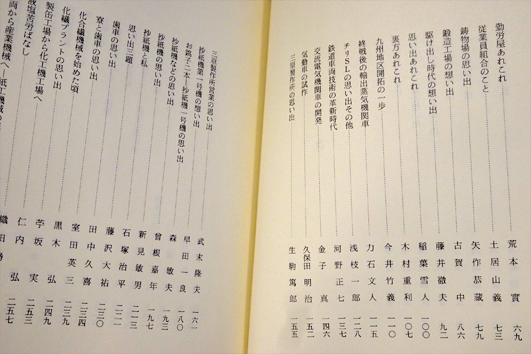 勤労屋あれこれ 荒本實 六九
従業員組合のこと 土居山義 七三
鋳物場の思い出 矢作恭蔵 七九
鍛造工場の想い出 古賀中 八六
駆け出し時代の想い出 藤井徹夫 九二
思い出あれこれ 稲葉雪人 一〇〇
裏方あれこれ 木村重利 一〇七
九州地区開拓の一歩 今井竹義 一一〇
終戦後の輸出蒸気機関車 力石文人 一一五
チリSLの思い出その他 浅枝一郎 一二八
鉄道車両技術の革新時代 河野正七 一三七
交流電気機関車の開発 金子真 一四六
気動車の試作 久保田明治 一五二
三原製作所の思い出 生駒篤郎 一五五
三原製作所営業の思い出 武末隆夫 一六一
抄紙機第一号機の想い出 早田一良 一八〇
お銚子二本―抄紙機一号機の思い出 森敏夫 一八三
抄紙機などの思い出 曽根嘉年 一九三
抄紙機の思い出 新見敏男 一九七
抄紙機と私 石塚治平 二一一
思い出三題 藤沢大祐 二二一
歯車の思い出 田中久喜 二三〇
寮と歯車の思い出 室田英三 二三九
化合繊機械を始めた頃 黒木弘 二四九
化繊プラントの思い出 苧坂実 二五三
製缶工場から化工機工場へ 仁内弘 二五七
蔵塩苦労ばなし 織田
両から産業機械へ―紙工機械の